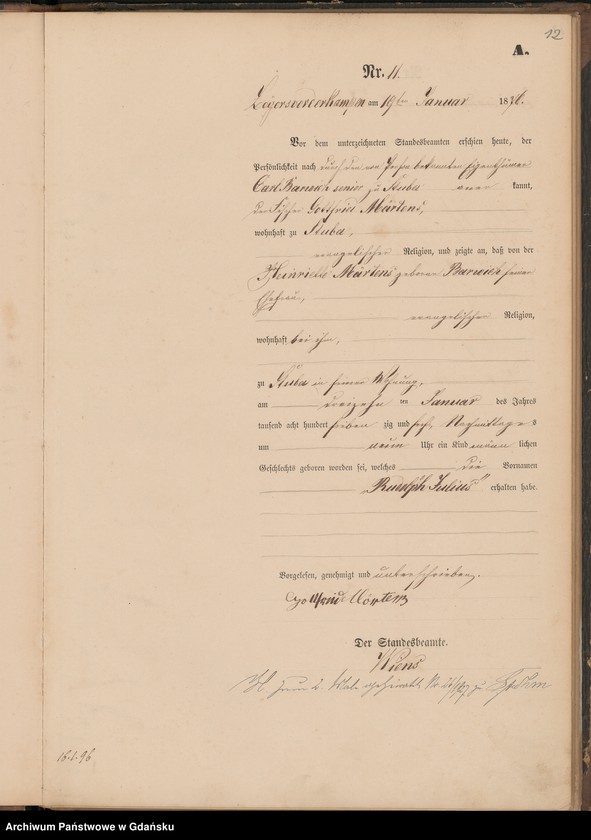 12
A.
Nr. 11.
Zeyersvorderkampen am 19ten Januar 1876.
Vor dem unterzeichneten Standesbeamten erschien heute, der
Persönlichkeit nach durch den von Person bekannten Eigenthümer
Carl Barwich senior zu Stuba aner kannt,
der Fischer Gottfried Märtens,
wohnhaft zu Stuba,
evangelischer Religion, und zeigte an, daß von der
Henriette Märtens geboren Barwich seiner
Ehefrau,
evangelischer Religion,
wohnhaft bei ihm,
zu Stuba in seiner Wohnung,
am dreizehn ten Januar des Jahres
tausend acht hundert sieben zig und sechs, Nachmittags
um neun Uhr ein Kind männ lichen
Geschlechts geboren worden sei, welches die Vornamen
„Rudolph Julius" erhalten habe.
Vorgelesen, genehmigt und unterschrieben.
Gottfried Märtens
Der Standesbeamte.
Wiens
zum 2. Male geheiratet Nr. zu
16.1.96
Archiwum Państwowe w Gdańsku